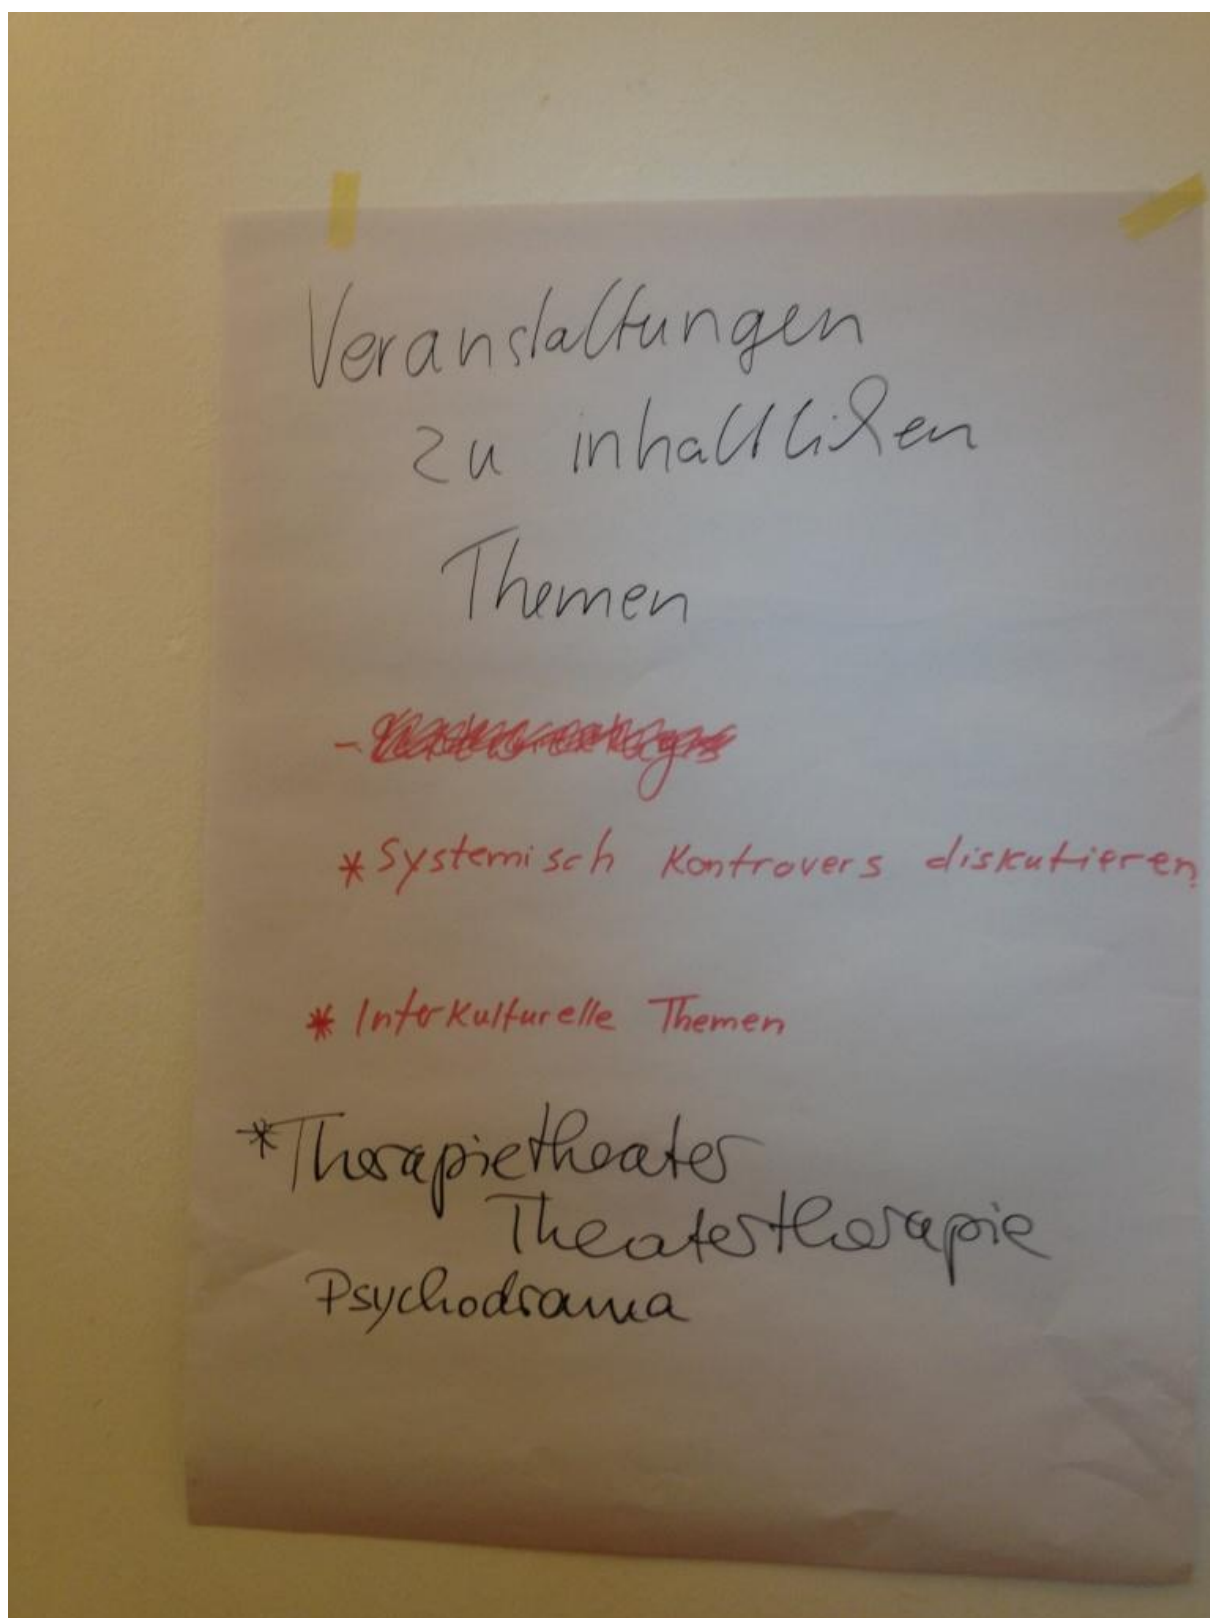 Veranstaltungen
zu inhaltlichen
Themen
-
* Systemisch Kontrovers diskutieren
* Interkulturelle Themen
* Therapietheater
Theatertherapie
Psychodrama